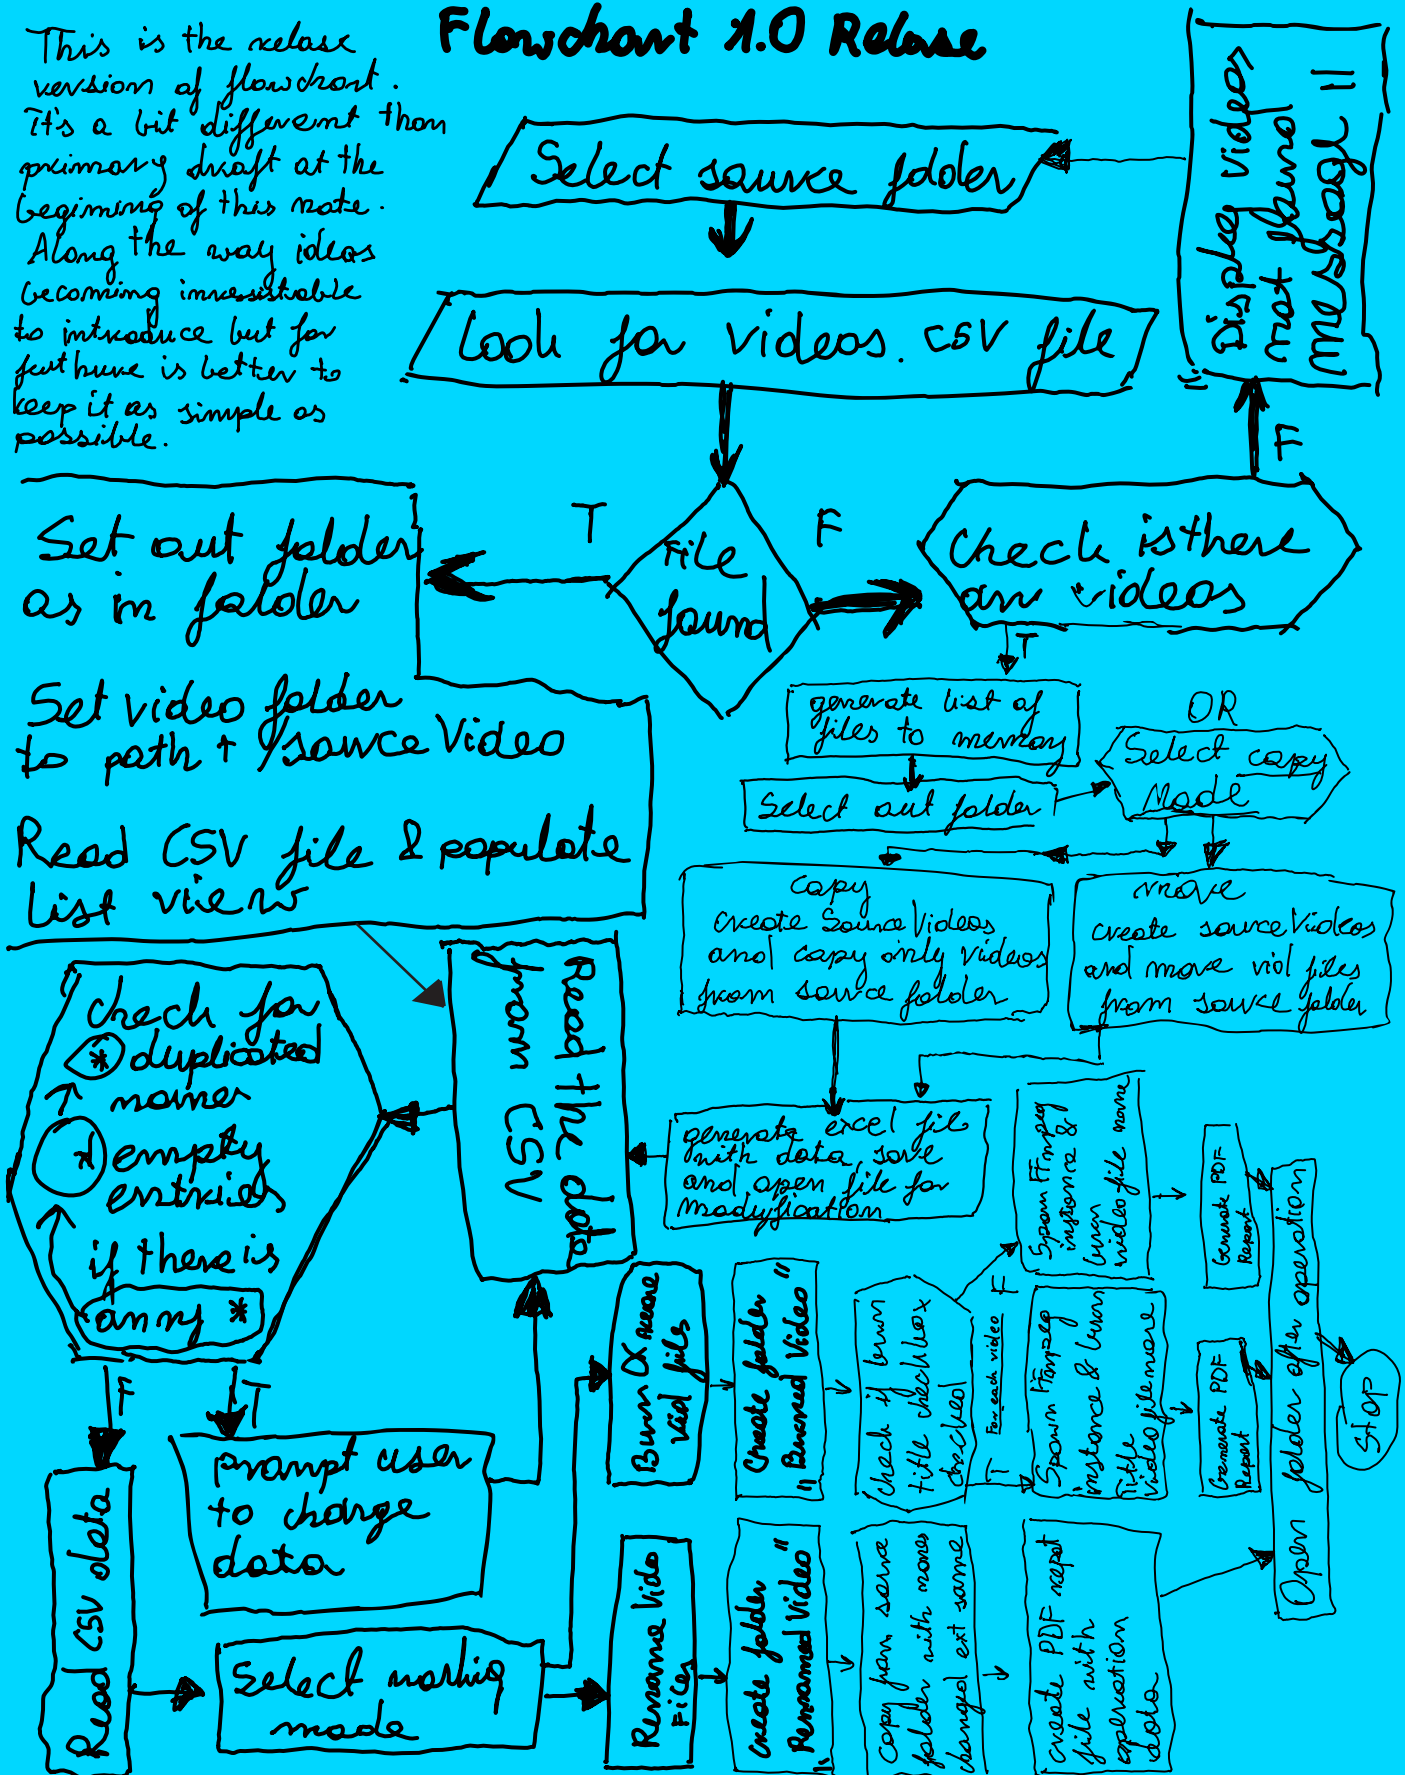 Flowchart 1.0 Relase
This is the relase
version of flowchart.
It's a bit different than
primary draft at the
begiming of this note.
Along the way ideas
becoming inresistable
to introduce but for
futhure is better to
keep it as simple as
possible.
Select source folder
Display videos
not found
message !!
Look for videos.csv file
F
T
File
found
F
Check is there
any videos
T
Set out folder
as in folder
Set video folder
to path + /source Video
Read CSV file & populate
list view
generate list of
files to memory
OR
Select copy
Mode
Select out folder
copy
create Source Videos
and copy only videos
from source folder
move
create source Videos
and move vid files
from source folder
generate excel file
with data, save
and open file for
modyfication
Read the data
from CSV
check for
* duplicated
names
* empty
entries
if there is
anny *
F
T
prompt user
to change
data
Read CSV data
Select working
mode
Burn &
vid files
Create folder
"Burned Video"
check if burn
title checkbox
checked
F
For each video
T
Spawn FFmpeg
instance &
burn
video file name
Generate PDF
Report
Spawn FFmpeg
instance & burn
title
video file name
Generate PDF
Report
Open folder after operation
STOP
Rename Vido
Files
Create folder
"Renamed Video"
Copy from sorce
folder with names
changed ext same
Create PDF repot
file with
operation
data